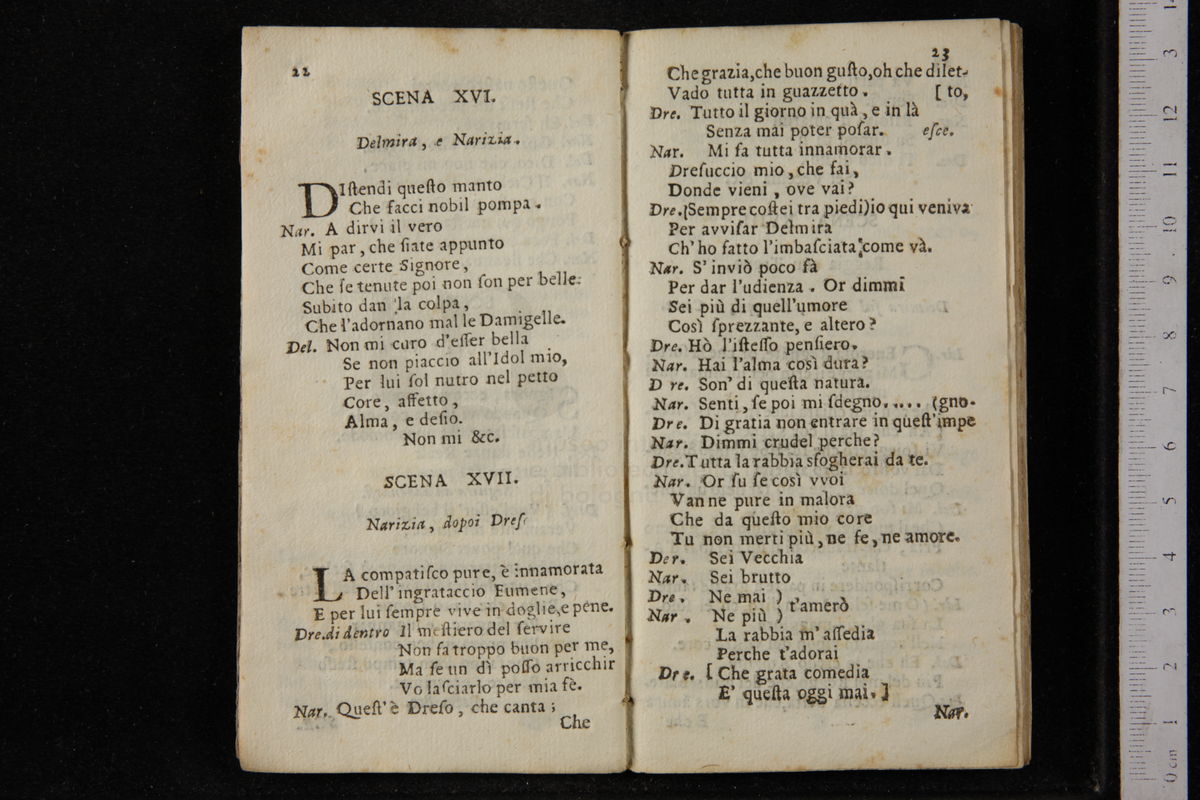 22
SCENA XVI.
Delmira, e Narizia.
DIſtendi queſto manto
Che facci nobil pompa.
Nar. A dirvi il vero
Mi par, che ſiate appunto
Come certe Signore,
Che ſe tenute poi non ſon per belle
Subito dan la colpa,
Che l'adornano mal le Damigelle.
Del. Non mi curo d'eſſer bella
Se non piaccio all'Idol mio,
Per lui ſol nutro nel petto
Core, affetto,
Alma, e deſio.
Non mi &c.
SCENA XVII.
Narizia, dopoi Dreſ
LA compatiſco pure, è innamorata
Dell'ingrataccio Eumene,
E per lui ſempre vive in doglie, e pene.
Dre. di dentro Il meſtiero del ſervire
Non fa troppo buon per me,
Ma ſe un dì poſſo arricchir
Vo laſciarlo per mia fè.
Nar. Queſt'è Dreſo, che canta;
Che
23
Che grazia, che buon guſto, oh che dilet-
Vado tutta in guazzetto. [to,
Dre. Tutto il giorno in quà, e in là
Senza mai poter poſar. eſce.
Nar. Mi fa tutta innamorar.
Dreſuccio mio, che fai,
Donde vieni, ove vai?
Dre. (Sempre coſtei tra piedi) io qui veniva
Per avviſar Delmira
Ch'ho fatto l'imbaſciata; come và.
Nar. S'inviò poco fà
Per dar l'udienza. Or dimmi
Sei più di quell'umore
Così ſprezzante, e altero?
Dre. Hò l'iſteſſo penſiero.
Nar. Hai l'alma così dura?
D re. Son' di queſta natura.
Nar. Senti, ſe poi mi ſdegno..... (gno.
Dre. Di gratia non entrare in queſt'impe
Nar. Dimmi crudel perche?
Dre. Tutta la rabbia sfogherai da te.
Nar. Or ſu ſe così vvoi
Vanne pure in malora
Che da queſto mio core
Tu non merti più, ne fe, ne amore.
Der. Sei Vecchia
Nar. Sei brutto
Dre. Ne mai ) t'amerò
Nar. Ne più )
La rabbia m'aſſedia
Perche t'adorai
Dre. [Che grata comedia
E' queſta oggi mai.]
Nar.